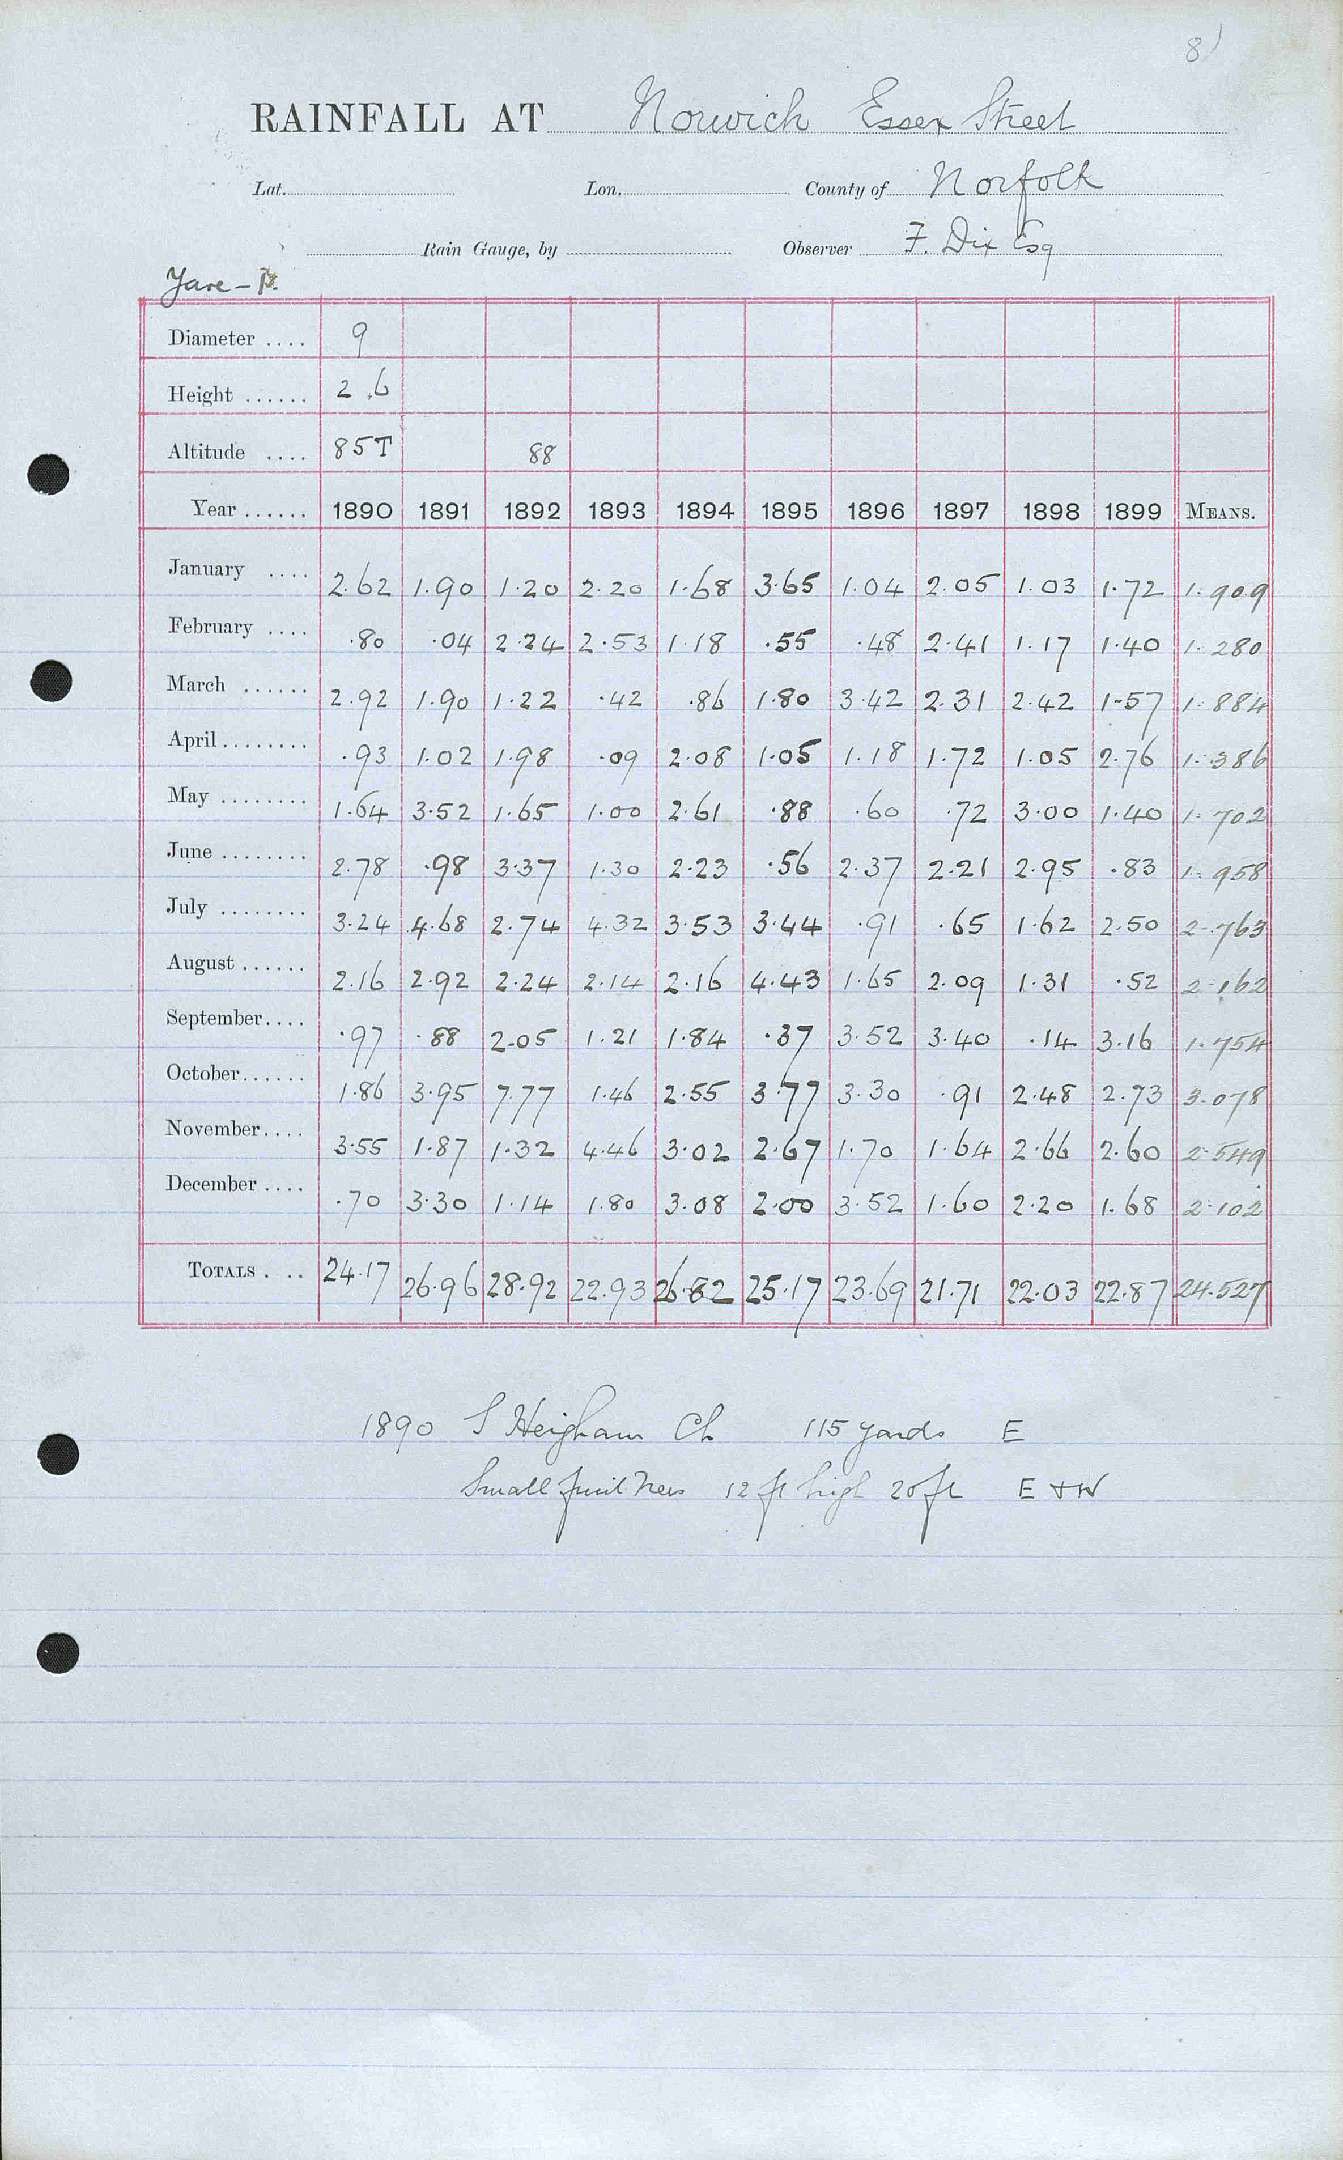 8)
RAINFALL AT Norwich Essex Street
Lat. Lon. County of Norfolk
Rain Gauge, by Observer F. Dix Esq
Yare –
Diameter .... 9
Height ...... 2.6
Altitude .... 85T 88
Year ...... 1890 1891 1892 1893 1894 1895 1896 1897 1898 1899 MEANS.
January .... 2.62 1.90 1.20 2.20 1.68 3.65 1.04 2.05 1.03 1.72 1.909
February .... .80 .04 2.24 2.53 1.18 .55 .48 2.41 1.17 1.40 1.280
March ...... 2.92 1.90 1.22 .42 .86 1.80 3.42 2.31 2.42 1.57 1.884
April ........ .93 1.02 1.98 .09 2.08 1.05 1.18 1.72 1.05 2.76 1.386
May ........ 1.64 3.52 1.65 1.00 2.61 .88 .60 .72 3.00 1.40 1.702
June ........ 2.78 .98 3.37 1.30 2.23 .56 2.37 2.21 2.95 .83 1.958
July ........ 3.24 4.68 2.74 4.32 3.53 3.44 .91 .65 1.62 2.50 2.763
August ...... 2.16 2.92 2.24 2.14 2.16 4.43 1.65 2.09 1.31 .52 2.162
September .... .97 .88 2.05 1.21 1.84 .37 3.52 3.40 .14 3.16 1.754
October ...... 1.86 3.95 7.77 1.46 2.55 3.77 3.30 .91 2.48 2.73 3.078
November .... 3.55 1.87 1.32 4.46 3.02 2.67 1.70 1.64 2.66 2.60 2.549
December .... .70 3.30 1.14 1.80 3.08 2.00 3.52 1.60 2.20 1.68 2.102
TOTALS . .. 24.17 26.96 28.92 22.93 26.82 25.17 23.69 21.71 22.03 22.87 24.527
1890 S Heigham Ch 115 yards E
Small fruit trees 12 ft high 20 ft E + W